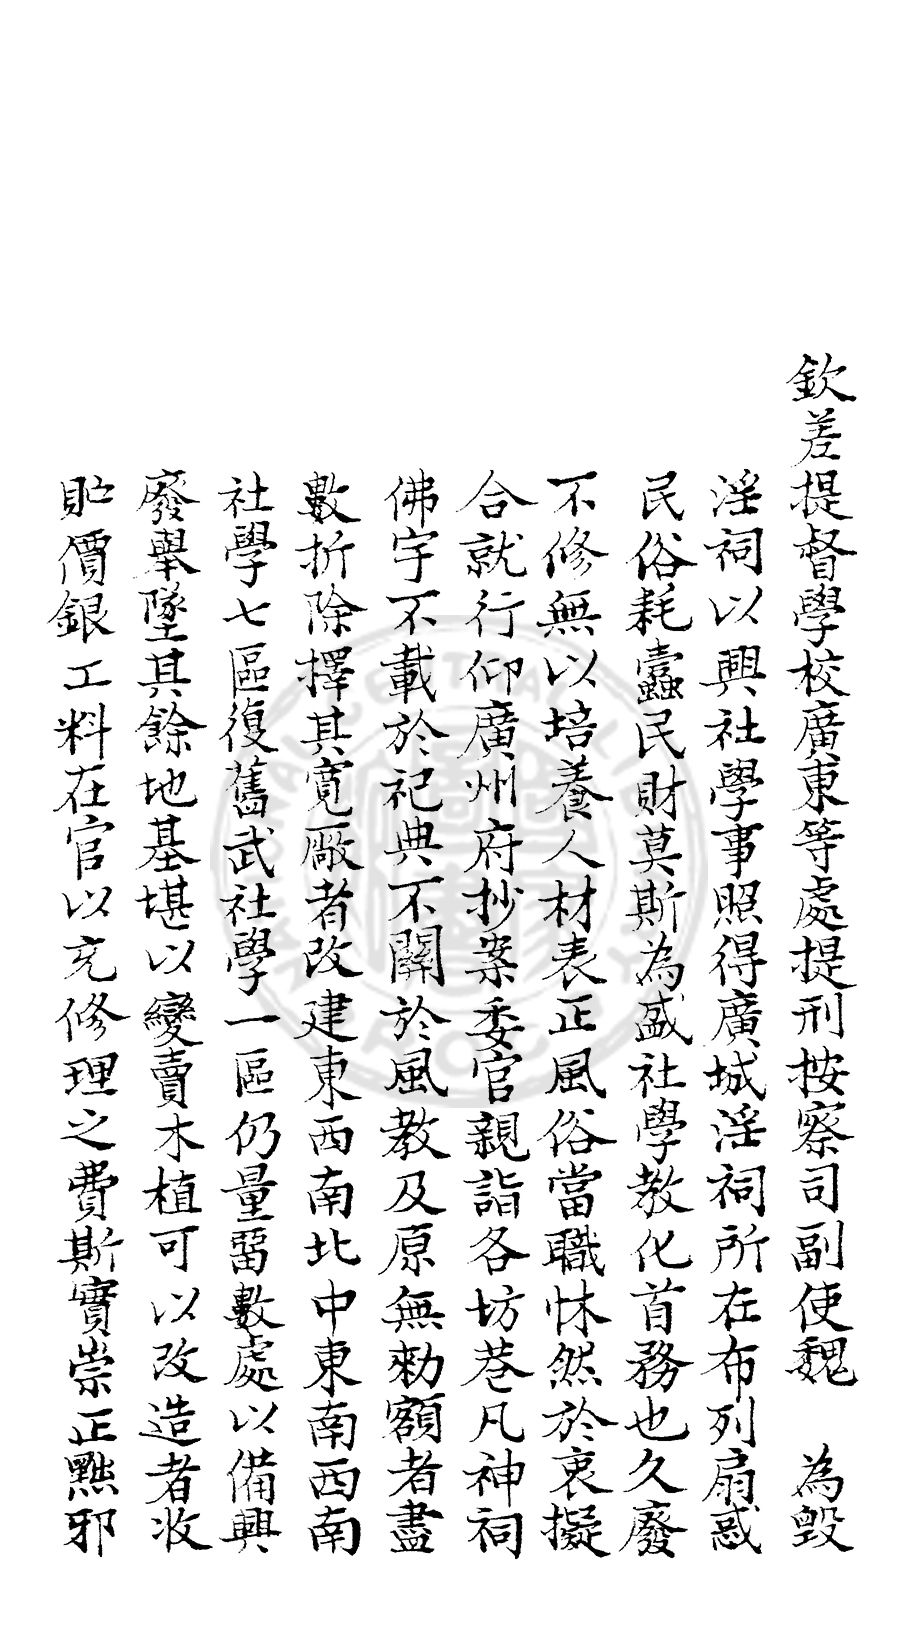 欽差提督學校廣東等處提刑按察司副使魏　為毀
淫祠以興社學事照得廣城淫祠所在布列扇惑
民俗耗蠹民財莫斯為盛社學教化首務也久廢
不修無以培養人材表正風俗當職怵然於衷擬
合就行仰廣州府抄案委官親詣各坊巷凡神祠
佛宇不載於祀典不關於風教及原無勅額者盡
數折除擇其寛厰者改建東西南北中東南西南
社學七區復舊武社學一區仍量畱數處以備興
廢舉墜其餘地基堪以變賣木植可以改造者收
貯價銀工料在官以充修理之費斯實崇正黜邪